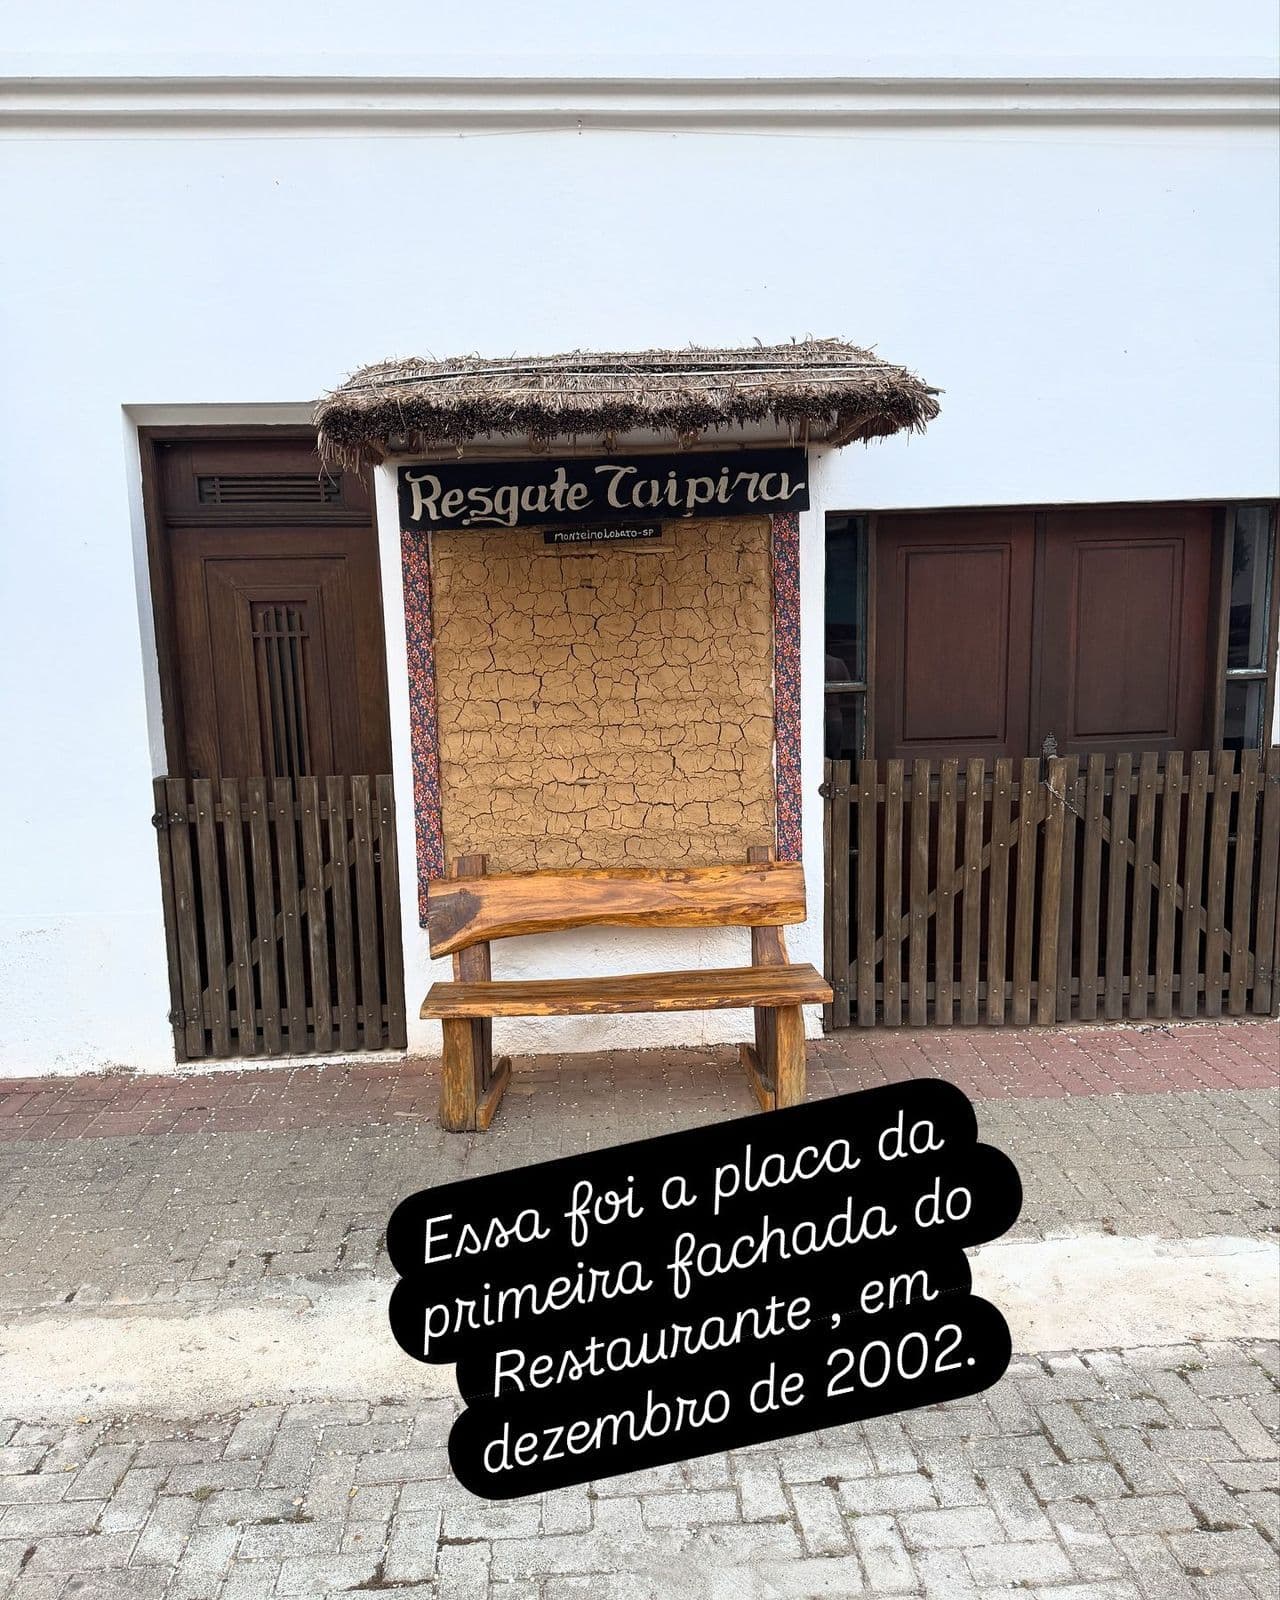 Resgate Caipira
Monteiro Lobato-SP
Essa foi a placa da
primeira fachada do
Restaurante , em
dezembro de 2002.